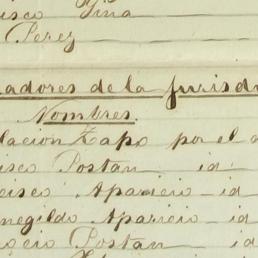 isco Piña
Perez
adores de la Jurisd
Nombres.
lacion Zapo por el a
isco Postan id
cisco Aparicio id
negildo Aparicio id
Postan id